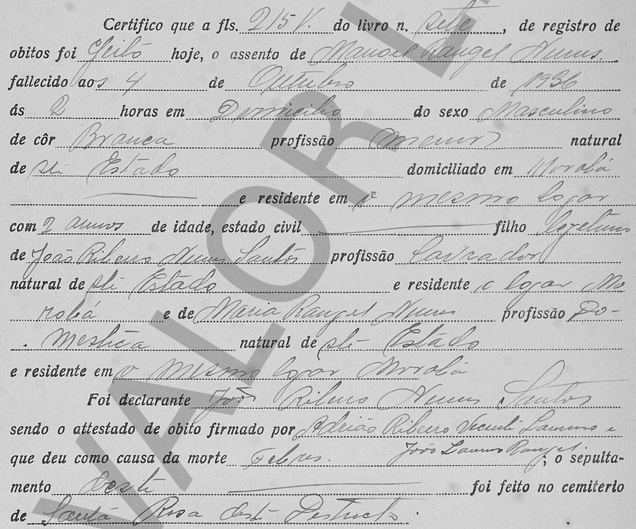 Certifico que a fls. 215V. do livro n. sete, de registro de
obitos foi feito hoje, o assento de Manoel Rangel Nunes
fallecido aos 4 de Outubro de 1936
ás 2 horas em Domicilio do sexo Masculino
de côr Branca profissão menor natural
de ste Estado domiciliado em Morobá
e residente em o mesmo logar
com 2 annos de idade, estado civil filho legitimo
de João Ribeiro Nunes Santos profissão lavrador
natural de ste Estado e residente o logar Mo
robá e de Maria Rangel Nunes profissão Do-
mestica natural de ste Estado
e residente em o mesmo logar Morobá
Foi declarante João Ribeiro Nunes Santos
sendo o attestado de obito firmado por Adrião Ribeiro e
que deu como causa da morte Febres. João Rangel; o sepulta-
mento deste foi feito no cemiterio
de Santa Rosa deste Districto.
VALOR